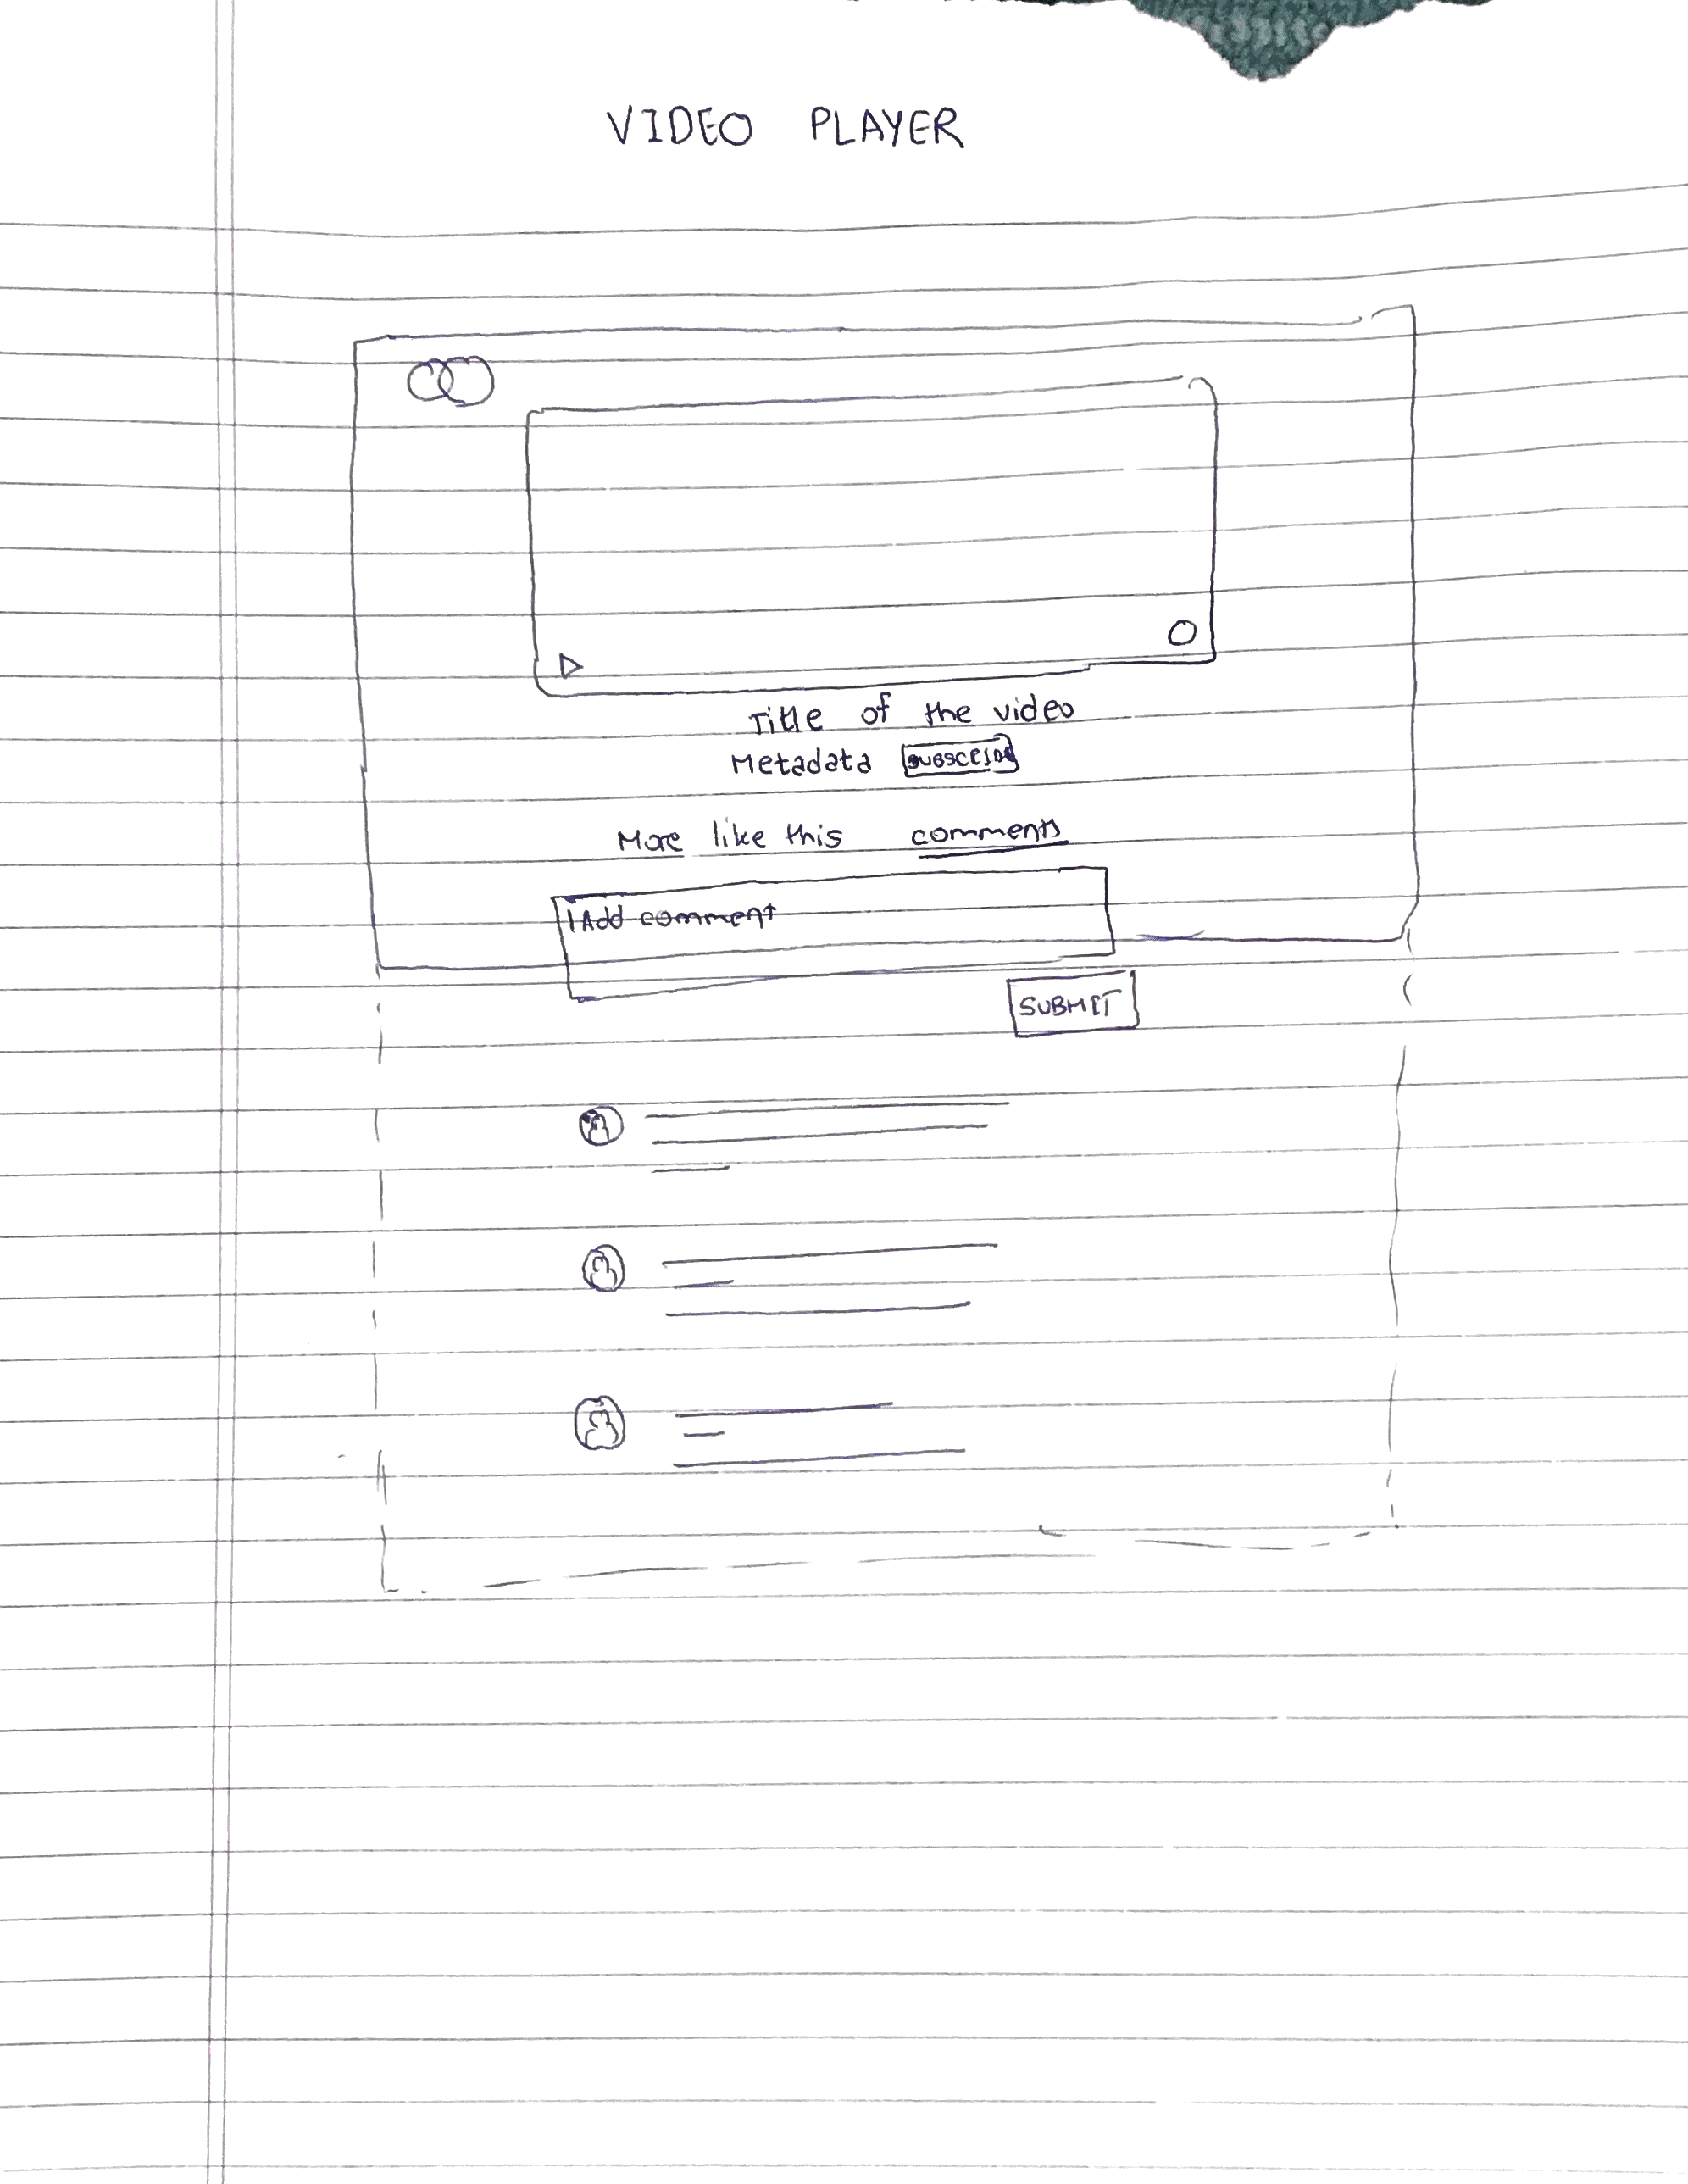 VIDEO PLAYER
Title of the video
Metadata SUBSCRIBE
More like this comments
Add comment
SUBMIT